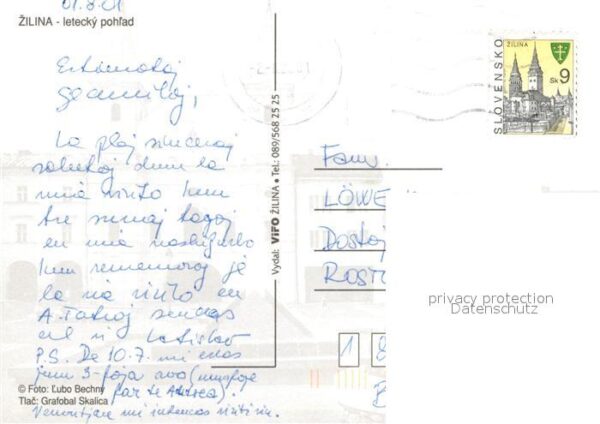 01.8.01
ŽILINA - letecký pohľad
Estimataj
geamikoj,
La plej sinceraj
salutoj dum la
mia vizito kun
tre sunaj tagoj
en mia naskiĝurbo
kun rememoroj je
la via vizito en
A. Tatroj sendas
al vi Latislav
P.S. De 10.7. mi estas
jam 3-foja avo (
far te Andrea).
Venontjare mi intencas viziti vin.
© Foto: Ľubo Bechný
Tlač: Grafobal Skalica
Vydal: ViFO ŽILINA • Tel.: 089/568 25 25
SLOVENSKO
ŽILINA
Sk 9
Fam.
LÖWE
Dostoj
ROSTO
1 8
privacy protection
Datenschutz